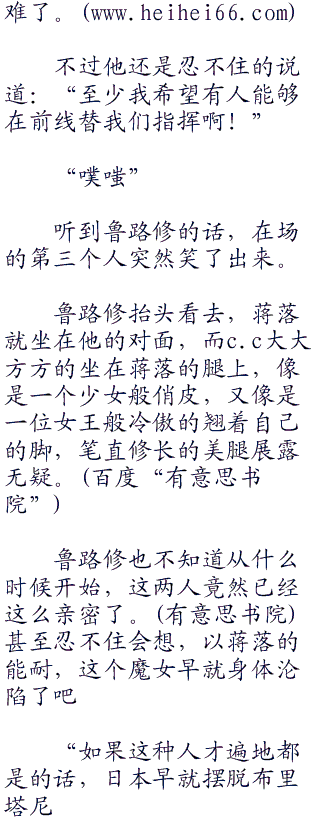 难了。(www.heihei66.com)
不过他还是忍不住的说
道：“至少我希望有人能够
在前线替我们指挥啊！”
“噗嗤”
听到鲁路修的话，在场
的第三个人突然笑了出来。
鲁路修抬头看去，蒋落
就坐在他的对面，而c.c大大
方方的坐在蒋落的腿上，像
是一个少女般俏皮，又像是
一位女王般冷傲的翘着自己
的脚，笔直修长的美腿展露
无疑。(百度“有意思书
院”)
鲁路修也不知道从什么
时候开始，这两人竟然已经
这么亲密了。(有意思书院)
甚至忍不住会想，以蒋落的
能耐，这个魔女早就身体沦
陷了吧
“如果这种人才遍地都
是的话，日本早就摆脱布里
塔尼